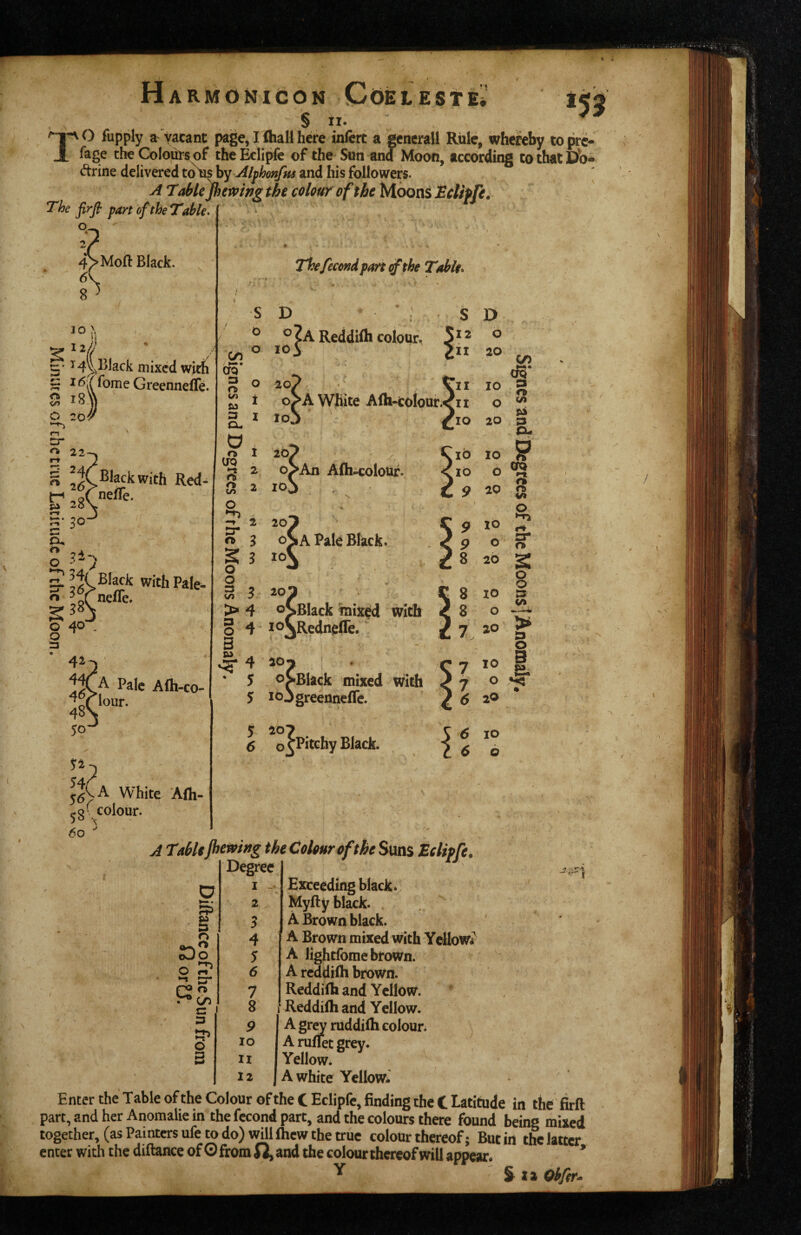 HARMONICON COELESTE. 153
§ 11.
TO supply a vacant page, I shall here insert a generall Rule, whereby to pre-
sage the Colours of the Eclipse of the Sun and Moon, according to that Do-
ctrine delivered to us by Alphonsus and his followers.
A Table shewing the colour of the Moons Eclipse.
The first part of the Table.
Minutes of the Latitude of the Moon.
0
2
4 Most Black.
6
8
10
12
14 Black mixed with
16 some Greennesse.
18
20
22
24 Black with Red-
26 nesse.
28
30
32
34 Black with Pale-
36 nesse.
38
40
42
44 A Pale Ash-co-
46 lour.
48
50
52
54
56 A White Ash-
58 colour.
60
The second part of the Table.
Signes and Degrees of the Moons Anomaly.
S D S D
0 0 A Reddish colour. 12 0
0 10 11 20
0 20 11 10
1 0 A White Ash-colour. 11 0
1 10 10 20
1 20 10 10
2 0 An Ash-colour. 10 0
2 10 9 20
2 20 9 10
3 0 A Pale Black. 9 0
3 10 8 20
3 20 8 10
4 0 Black mixed with 8 0
4 10 Rednesse. 7 20
4 20 7 10
5 0 Black mixed with 7 0
5 10 greennesse. 6 20
5 20 6 10
6 0 Pitchy Black. 6 0
Signes and Degrees of the Moons Anomaly.
A Table shewing the Colour of the Suns Eclipse.
Distance of the Sun from ☊ or ☋.
Degree
1 Exceeding black.
2 Mysty black.
3 A Brown black.
4 A Brown mixed with Yellow.
5 A lightsome brown.
6 A reddish brown.
7 Reddish and Yellow.
8 Reddish and Yellow.
9 A grey ruddish colour.
10 A russet grey.
11 Yellow.
12 A white Yellow.
Enter the Table of the Colour of the ☾ Eclipse, finding the ☾ Latitude in the first
part, and her Anomalie in the second part, and the colours there found being mixed
together, (as Painters use to do) will shew the true colour thereof; But in the latter,
enter with the distance of ☉ from ☊, and the colour thereof will appear.
Y § 12 Obser-